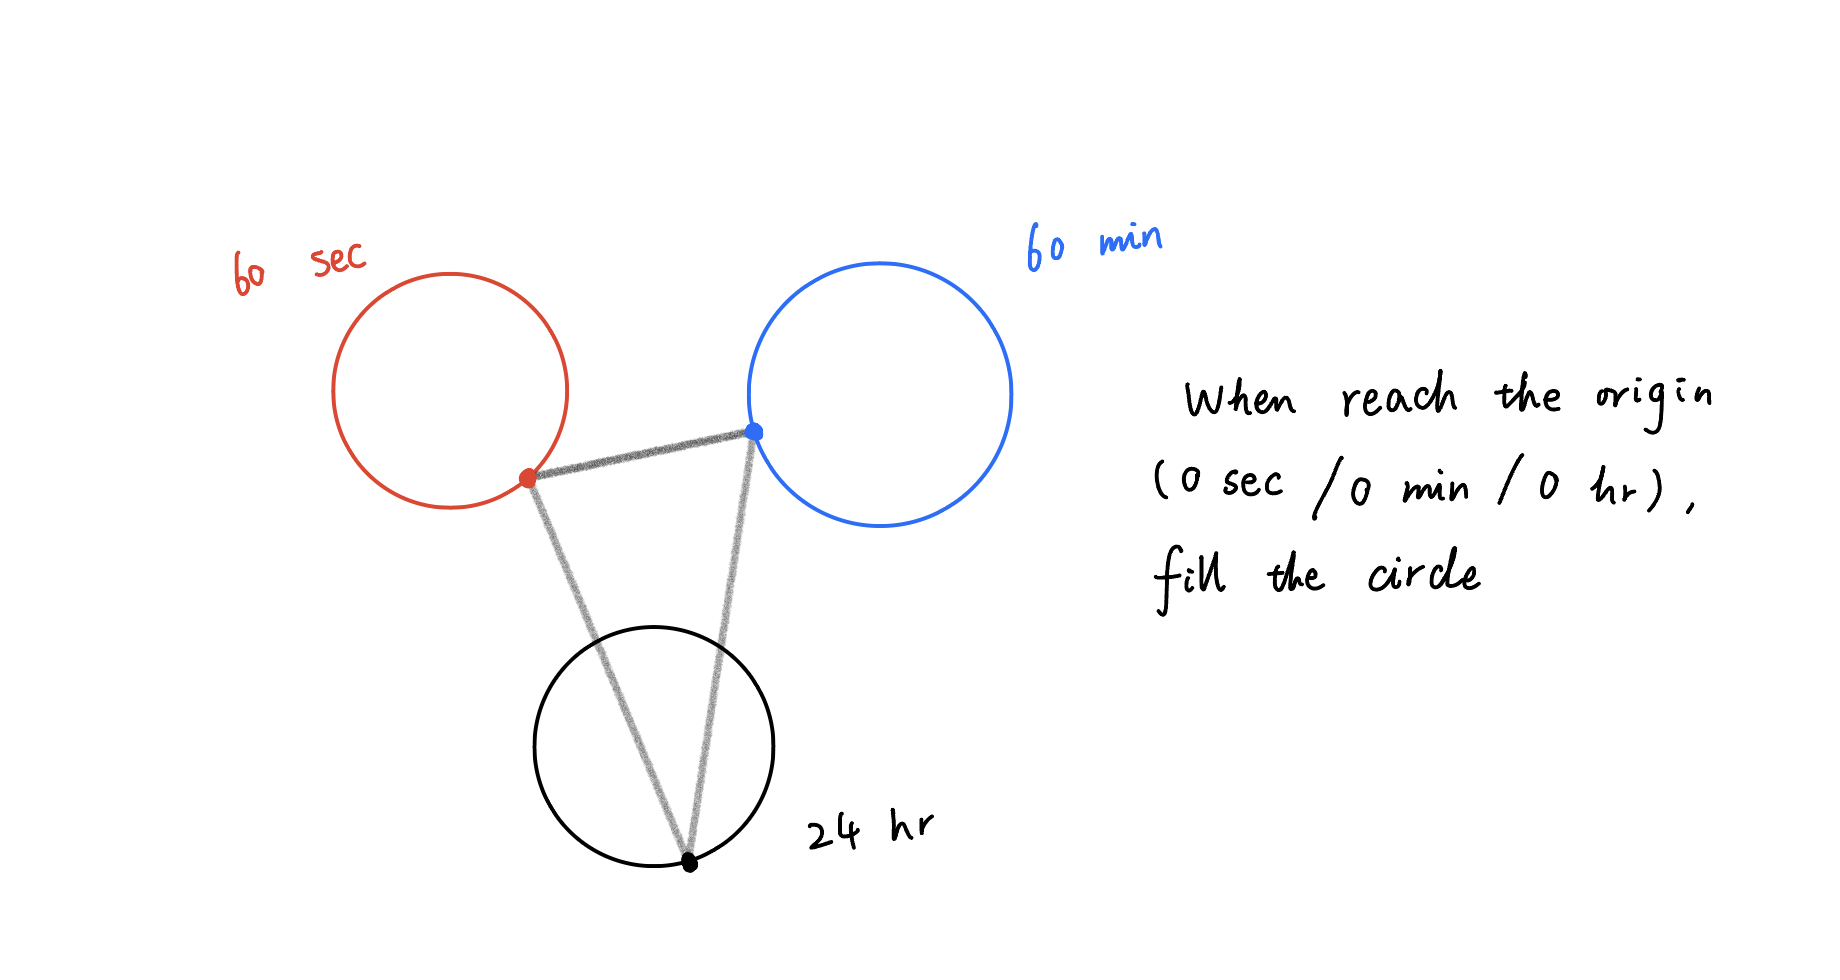 60 sec
60 min
When reach the origin
(0 sec / 0 min / 0 hr),
fill the circle
24 hr